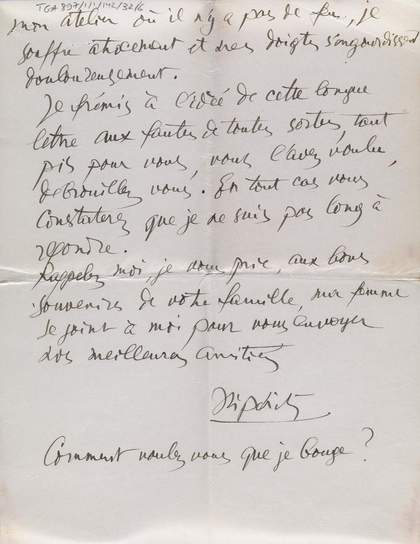 TGA 897/1/1/142/32/6
mon atelier où il n'y a pas de feu, je
souffre atrocement et mes doigts s'engourdissent
douloureusement.
Je frémis à l'idée de cette longue
lettre aux fautes de toutes sortes, tant
pis pour vous, vous l'avez voulu
débrouillez vous. En tout cas vous
constaterez que je ne suis pas long à
répondre.
Rappelez moi, je vous prie, aux bons
souvenirs de votre famille, ma femme
se joint à moi pour vous envoyer
nos meilleures amitiés
Comment voulez vous que je bouge ?